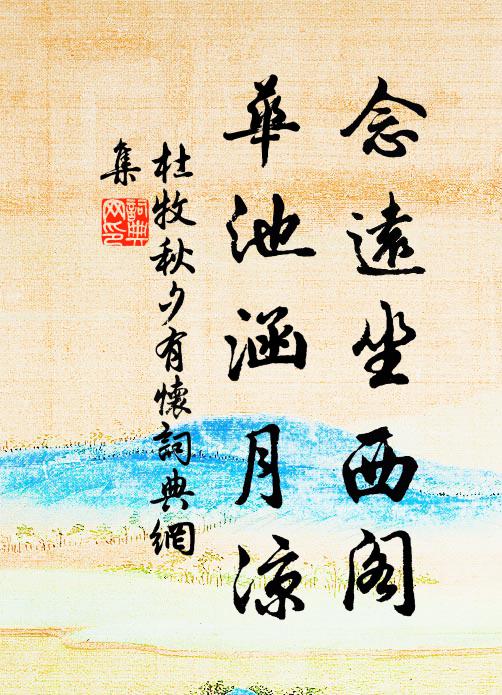 念遠坐西閣
華池涵月涼
杜牧秋夕有懷詞典網
集
詞典
网印